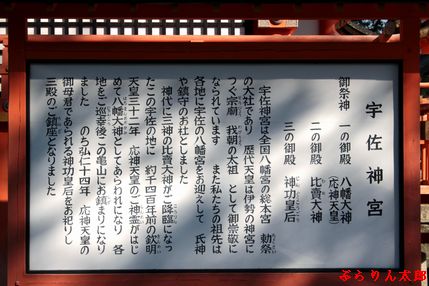 宇佐神宮
御祭神 一の御殿 八幡大神
(応神天皇)
二の御殿 比賣大神
三の御殿 神功皇后
宇佐神宮は全国八幡宮の総本宮 勅祭
の大社であり 歴代天皇は伊勢の神宮に
つぐ宗廟 我朝の太祖 として御崇敬に
なられています また私たちの祖先は
各地に宇佐の八幡宮をお迎えして 氏神
や鎮守のお社としました
神代に三神の比賣大神がご降臨になっ
たこの宇佐の地に 約千四百年前の欽明
天皇三十二年 応神天皇のご神霊がはじ
めて八幡大神としてあらわれになり 各
地をご巡幸後この亀山にお鎮まりになり
ました のち弘仁十四年 応神天皇の
御母君であられる神功皇后をお祀りし
三殿のご鎮座となりました
ぶらりん太郎